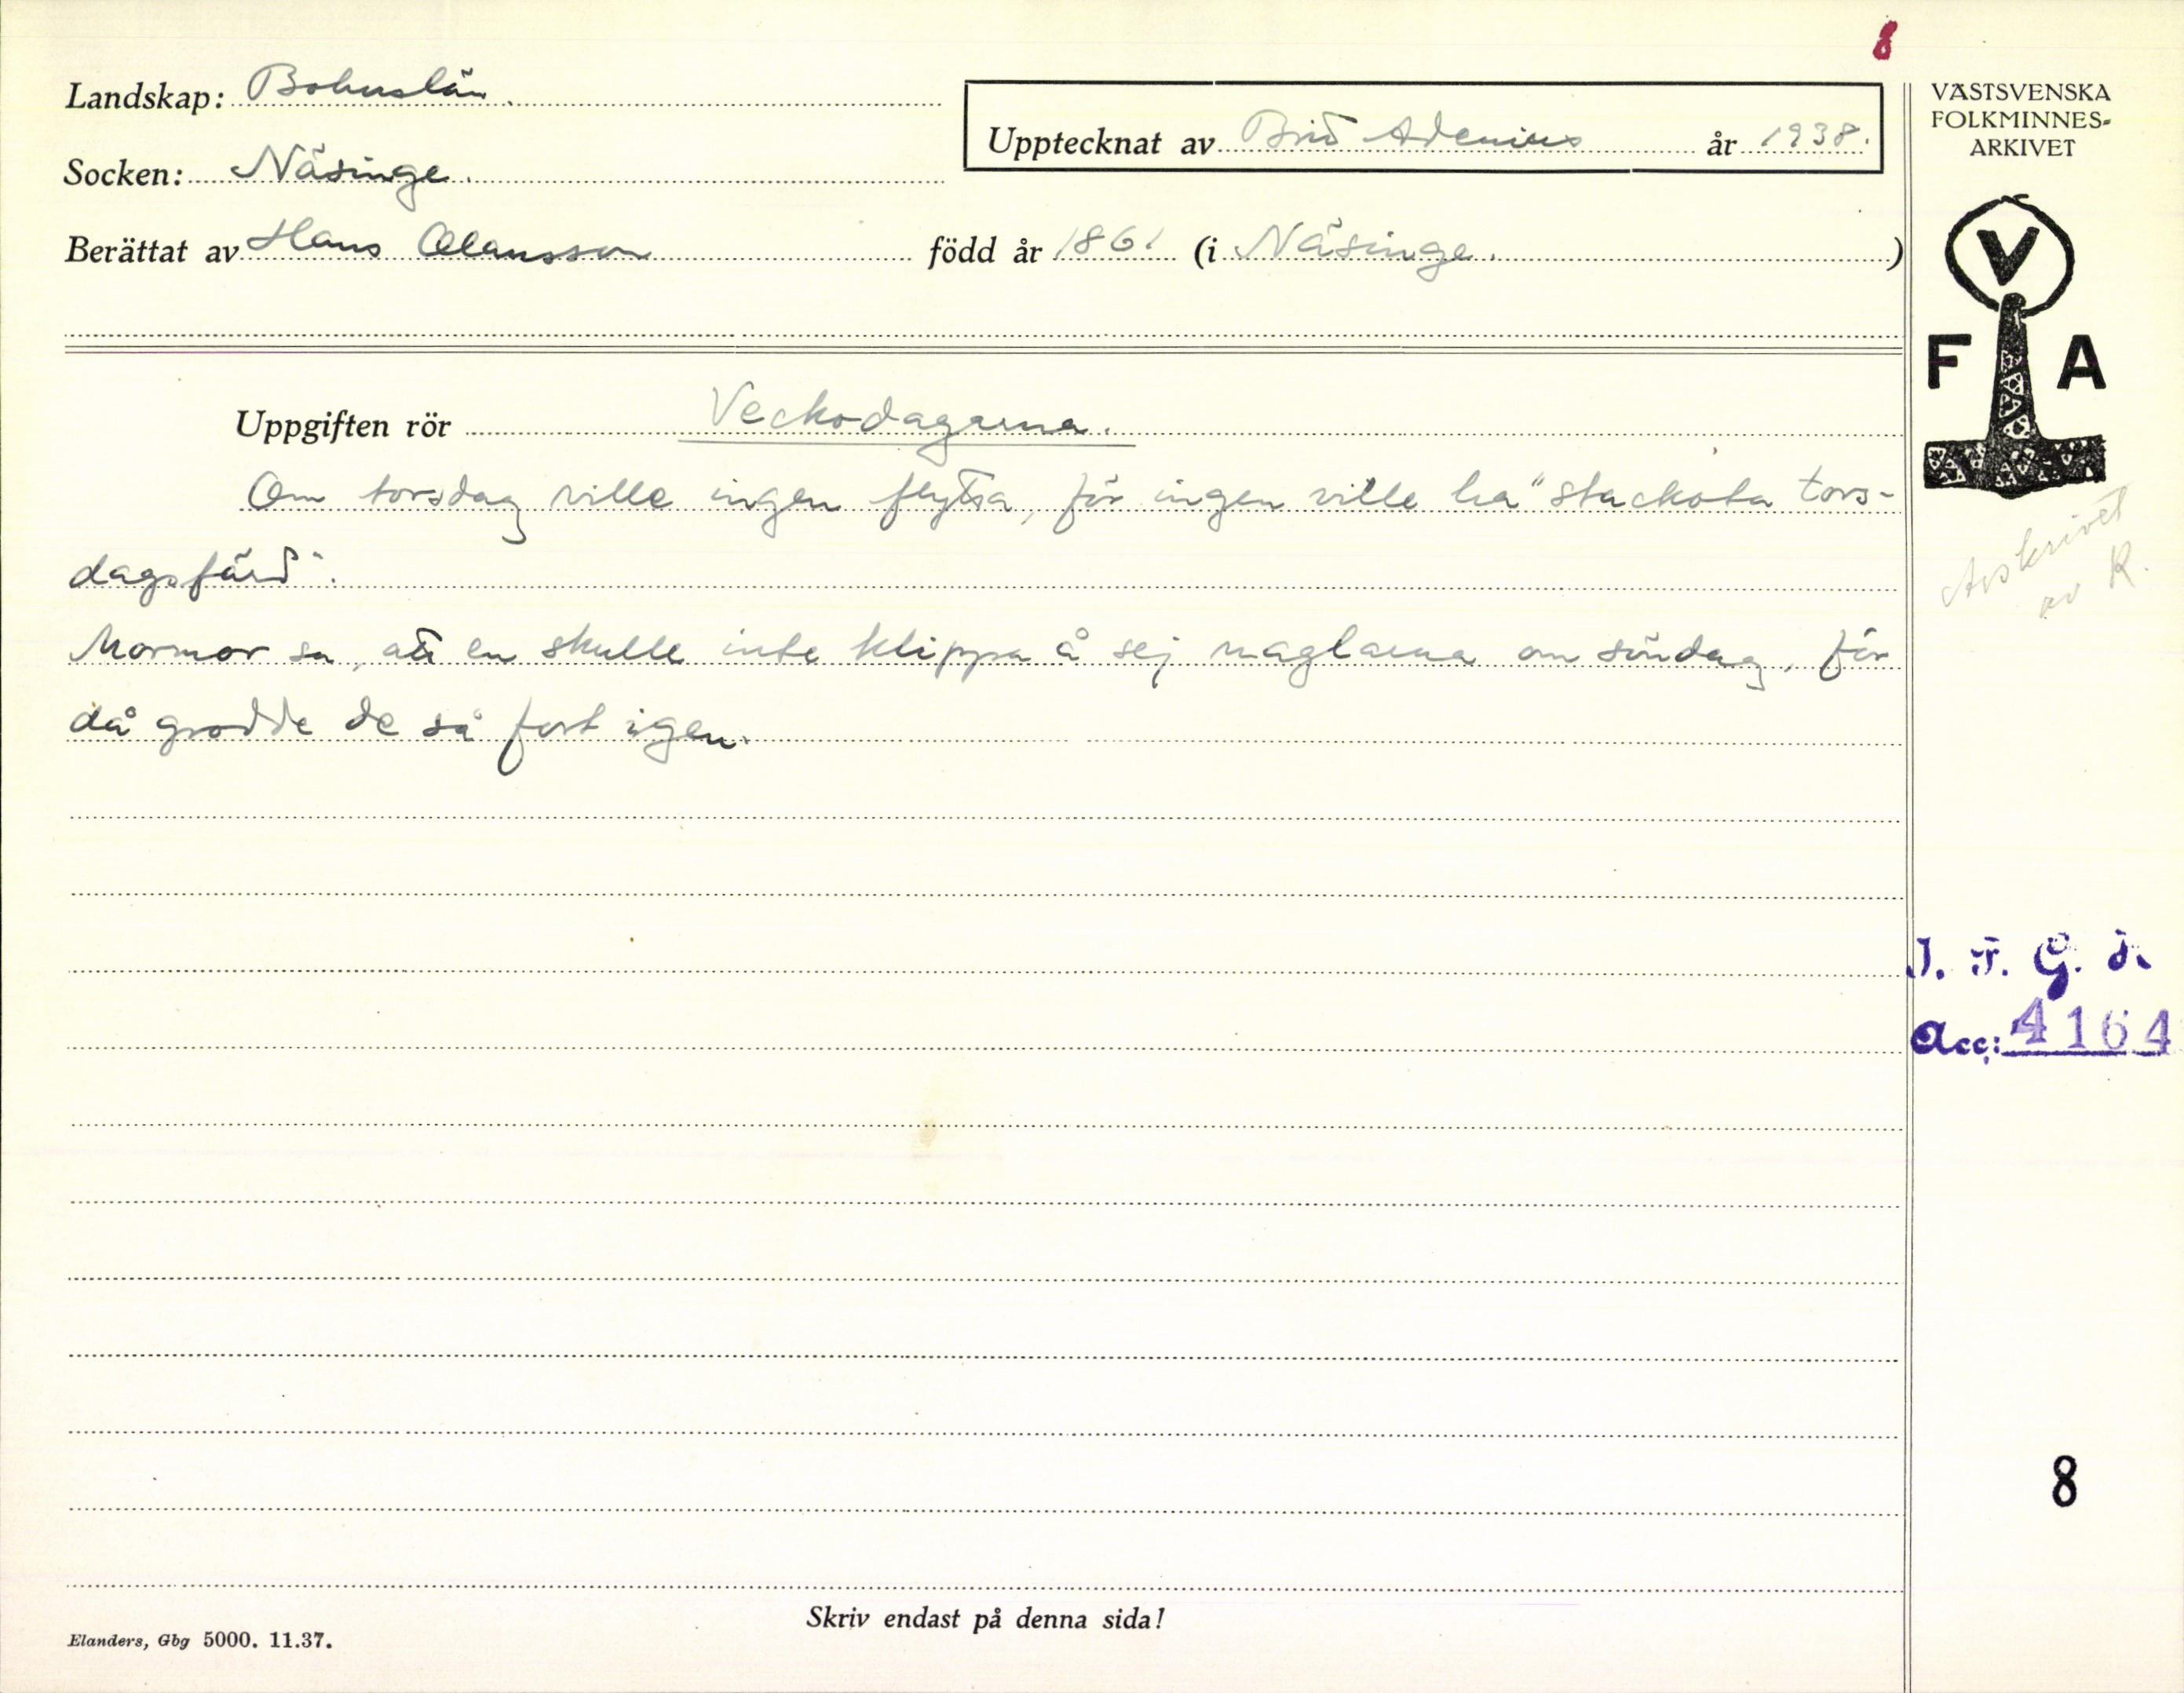 8
Landskap: Bohuslän.
Upptecknat av Brid Adenius år 1938.
Socken: Näsinge.
Berättat av Hans Olausson född år 1861 (i Näsinge.)
VÄSTSVENSKA
FOLKMINNES-
ARKIVET
V
F A
Uppgiften rör Veckodagarna.
Om torsdag ville ingen flytta, för ingen ville ha "stackota tors-
dagsfärd".
Mormor sa, att en skulle inte klippa å sej naglarna om söndag, för
då grodde de så fort igen.
Avskrivet
av R.
I. F. G. s.
Acc: 4164
8
Skriv endast på denna sida!
Elanders, Gbg 5000. 11.37.